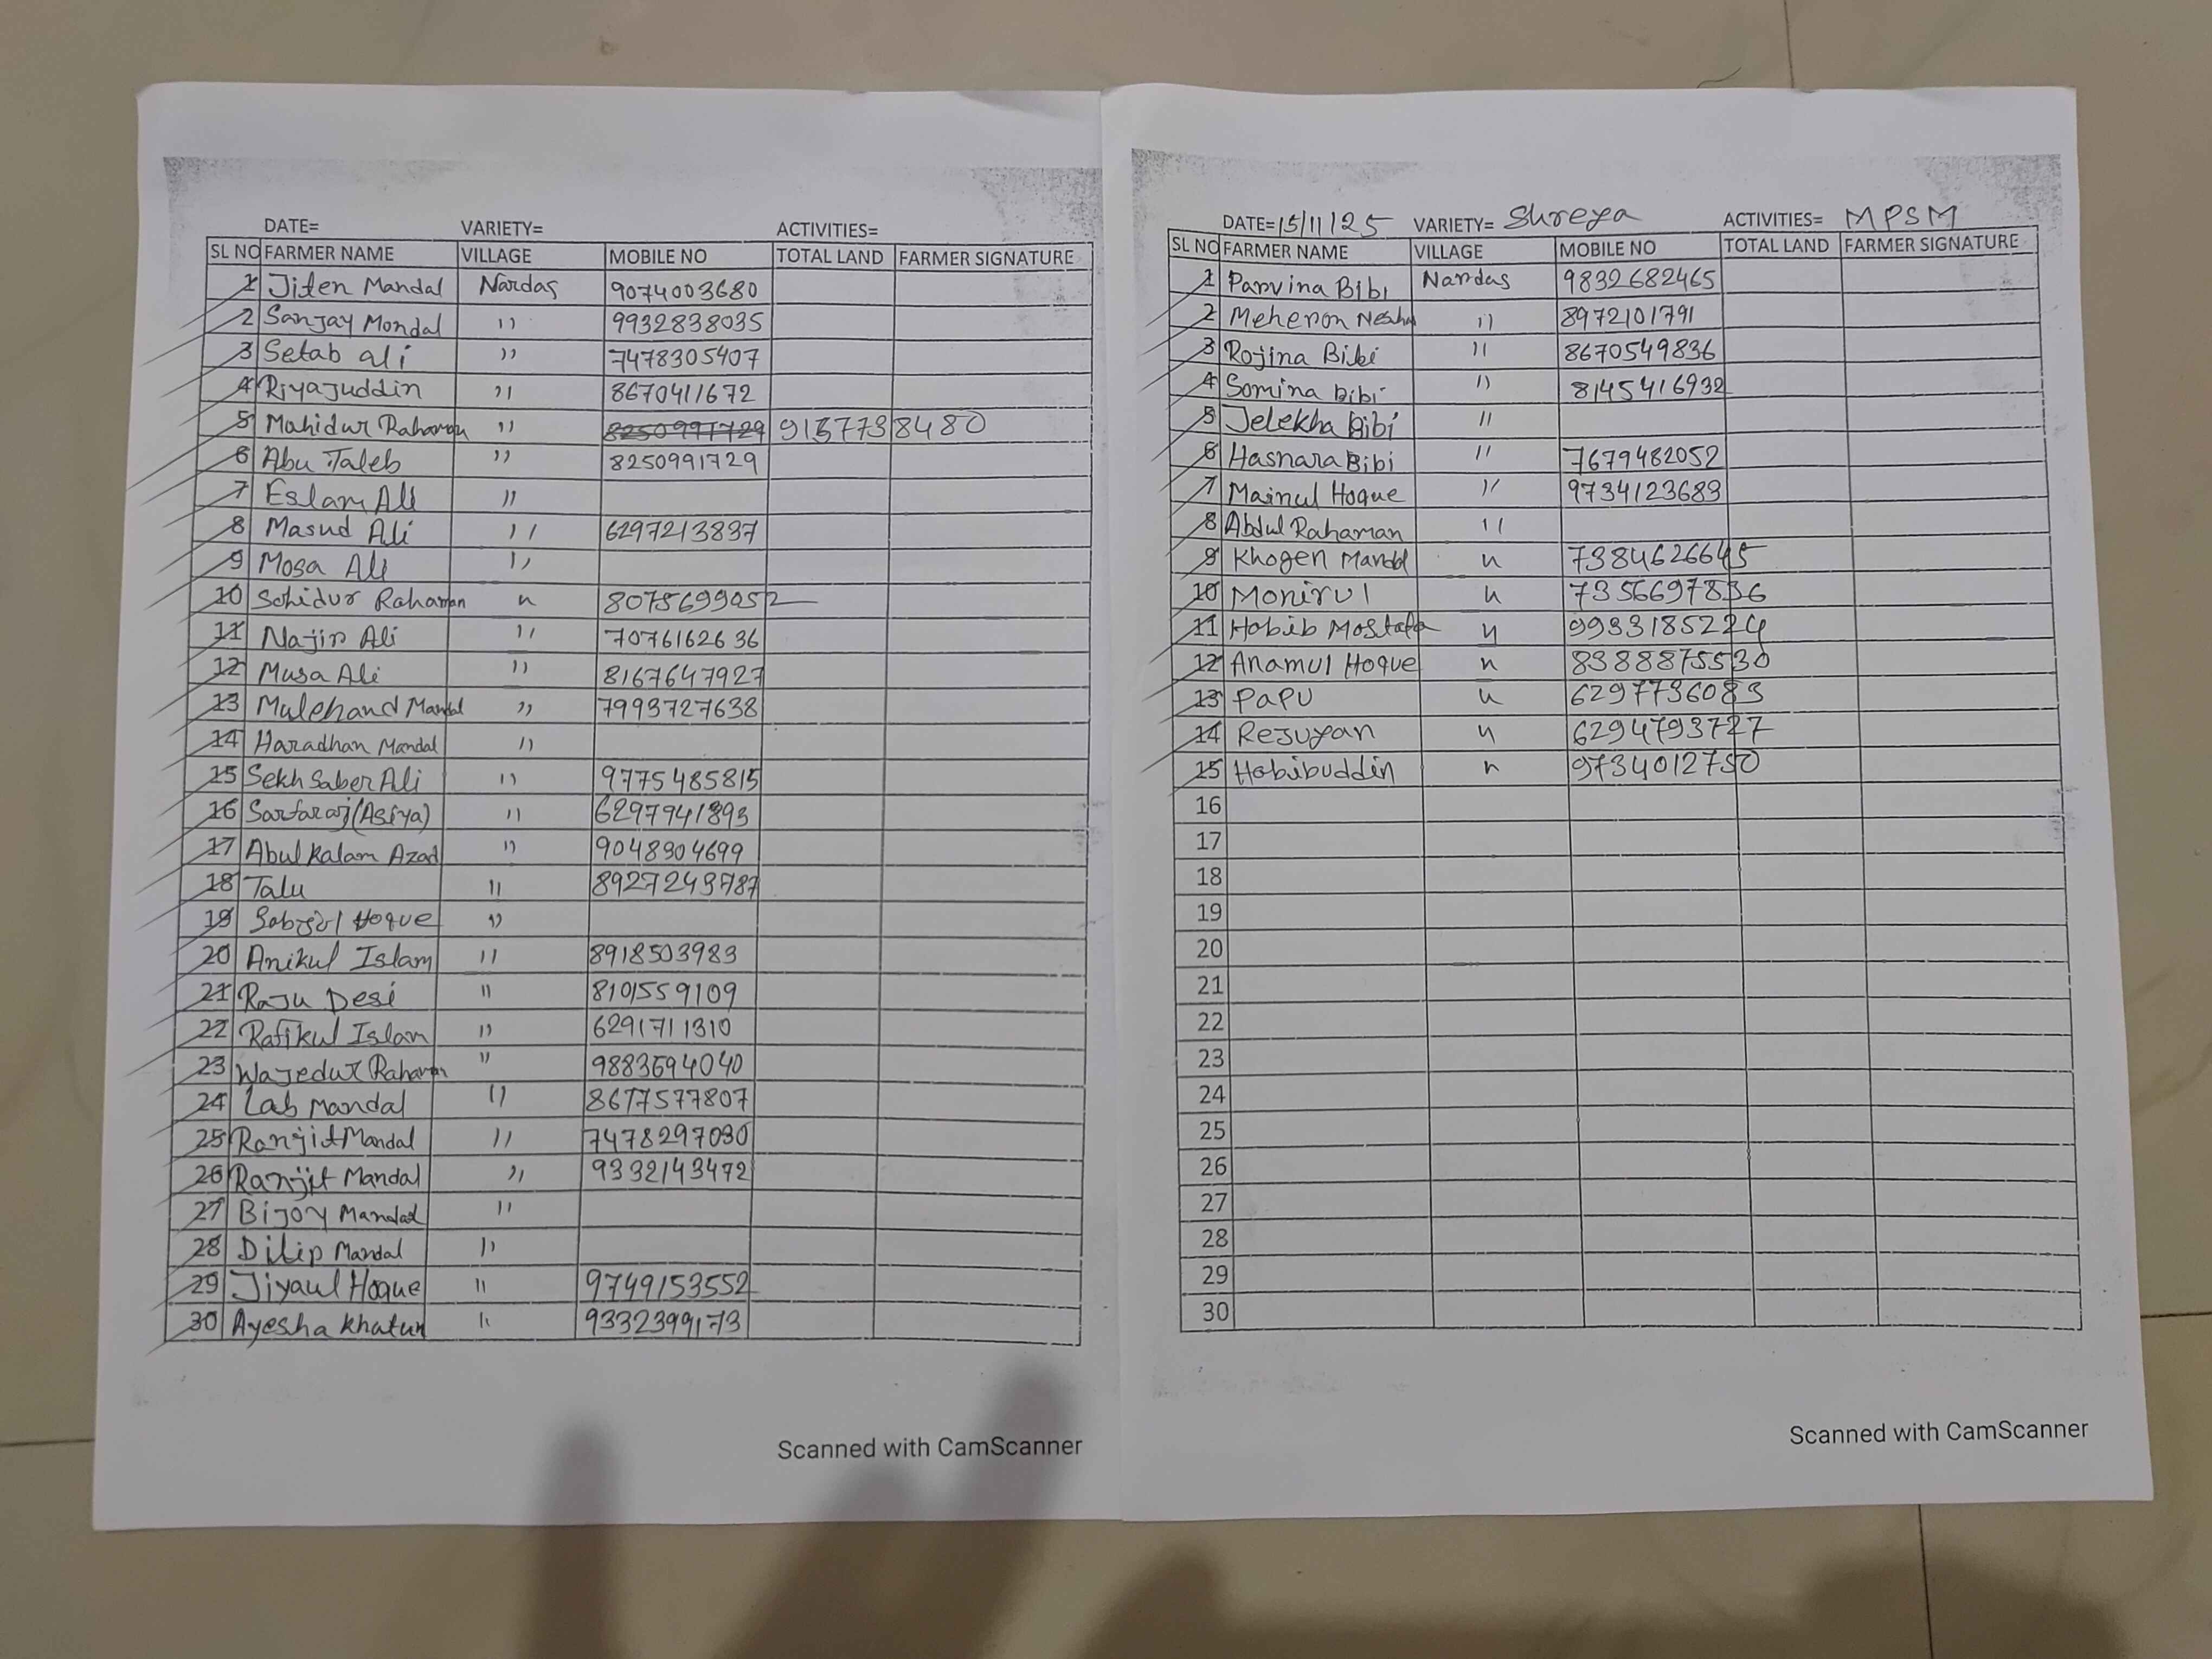 DATE= VARIETY= ACTIVITIES=
SL NO FARMER NAME VILLAGE MOBILE NO TOTAL LAND FARMER SIGNATURE
1 Jiten Mandal Nardas 9074003680
2 Sanjay Mondal " 9932838035
3 Setab ali " 7478305407
4 Riyajuddin " 8670411672
5 Mahidur Rahaman " 8250991729 9137738480
6 Abu Taleb " 8250991729
7 Eslam Ali "
8 Masud Ali " 6297213837
9 Mosa Ali "
10 Sohidur Rahaman " 8075699052
11 Najir Ali " 7076162636
12 Musa Ali " 8167647927
13 Mulchand Mandal " 7993727638
14 Haradhan Mandal "
15 Sekh Saber Ali " 9775485815
16 Sarfaraj (Asiya) " 6297941893
17 Abul Kalam Azad " 9048904699
18 Talu " 8927243787
19 Hoque "
20 Anikul Islam " 8918503983
21 Raju Desi " 8101559109
22 Rafikul Islam " 6291711310
23 Wajedur Rahaman " 9883694040
24 Lab Mandal " 8617577807
25 Ranjit Mandal " 7478297030
26 Ranjit Mandal " 9332143472
27 Bijoy Mandal "
28 Dilip Mandal "
29 Jiyaul Hoque " 9749153552
30 Ayesha Khatun " 9332399173
Scanned with CamScanner
DATE=15/11/25 VARIETY= Shreya ACTIVITIES= MPSM
SL NO FARMER NAME VILLAGE MOBILE NO TOTAL LAND FARMER SIGNATURE
1 Parvina Bibi Nardas 9832682465
2 Meheron Nesha " 8972101791
3 Rojina Bibi " 8670549836
4 Somina Bibi " 8145416932
5 Jelekha Bibi "
6 Hasnara Bibi " 7679482052
7 Mainul Hoque " 9734123683
8 Abdul Rahaman "
9 Khogen Mandal " 7384626645
10 Monirul " 7356697836
11 Habib Mostafa " 9933185224
12 Anamul Hoque " 8388875530
13 PaPu " 6297736083
14 Rejuyan " 6294793727
15 Habibuddin " 9734012750
16
17
18
19
20
21
22
23
24
25
26
27
28
29
30
Scanned with CamScanner